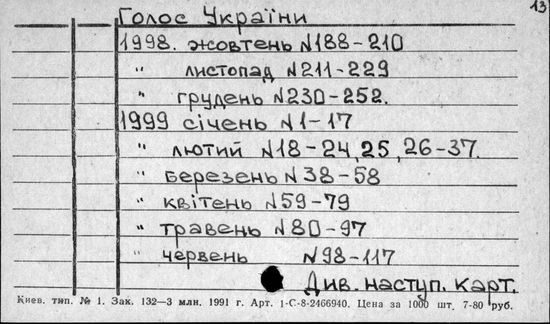 13
Голос України
1998. жовтень N188-210
" листопад N211-229
" грудень N230-252.
1999 січень N1-17
" лютий N18-24, 25, 26-37.
" березень N38-58
" квітень N59-79
" травень N80-97
" червень N98-117
Див. наступ. карт.
Киев. тип. № 1. Зак. 132—3 млн. 1991 г. Арт. 1-С-8-2466940. Цена за 1000 шт. 7-80 руб.